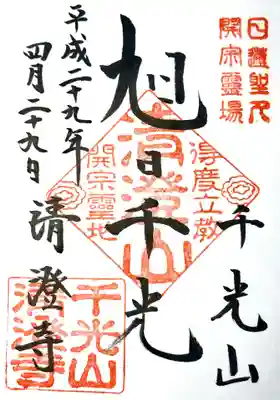 日蓮聖人
開宗靈場
千光山
得度立教
旭日千光
清澄山
開宗靈地
清澄寺
平成二十九年
四月二十九日
千光山
清澄寺